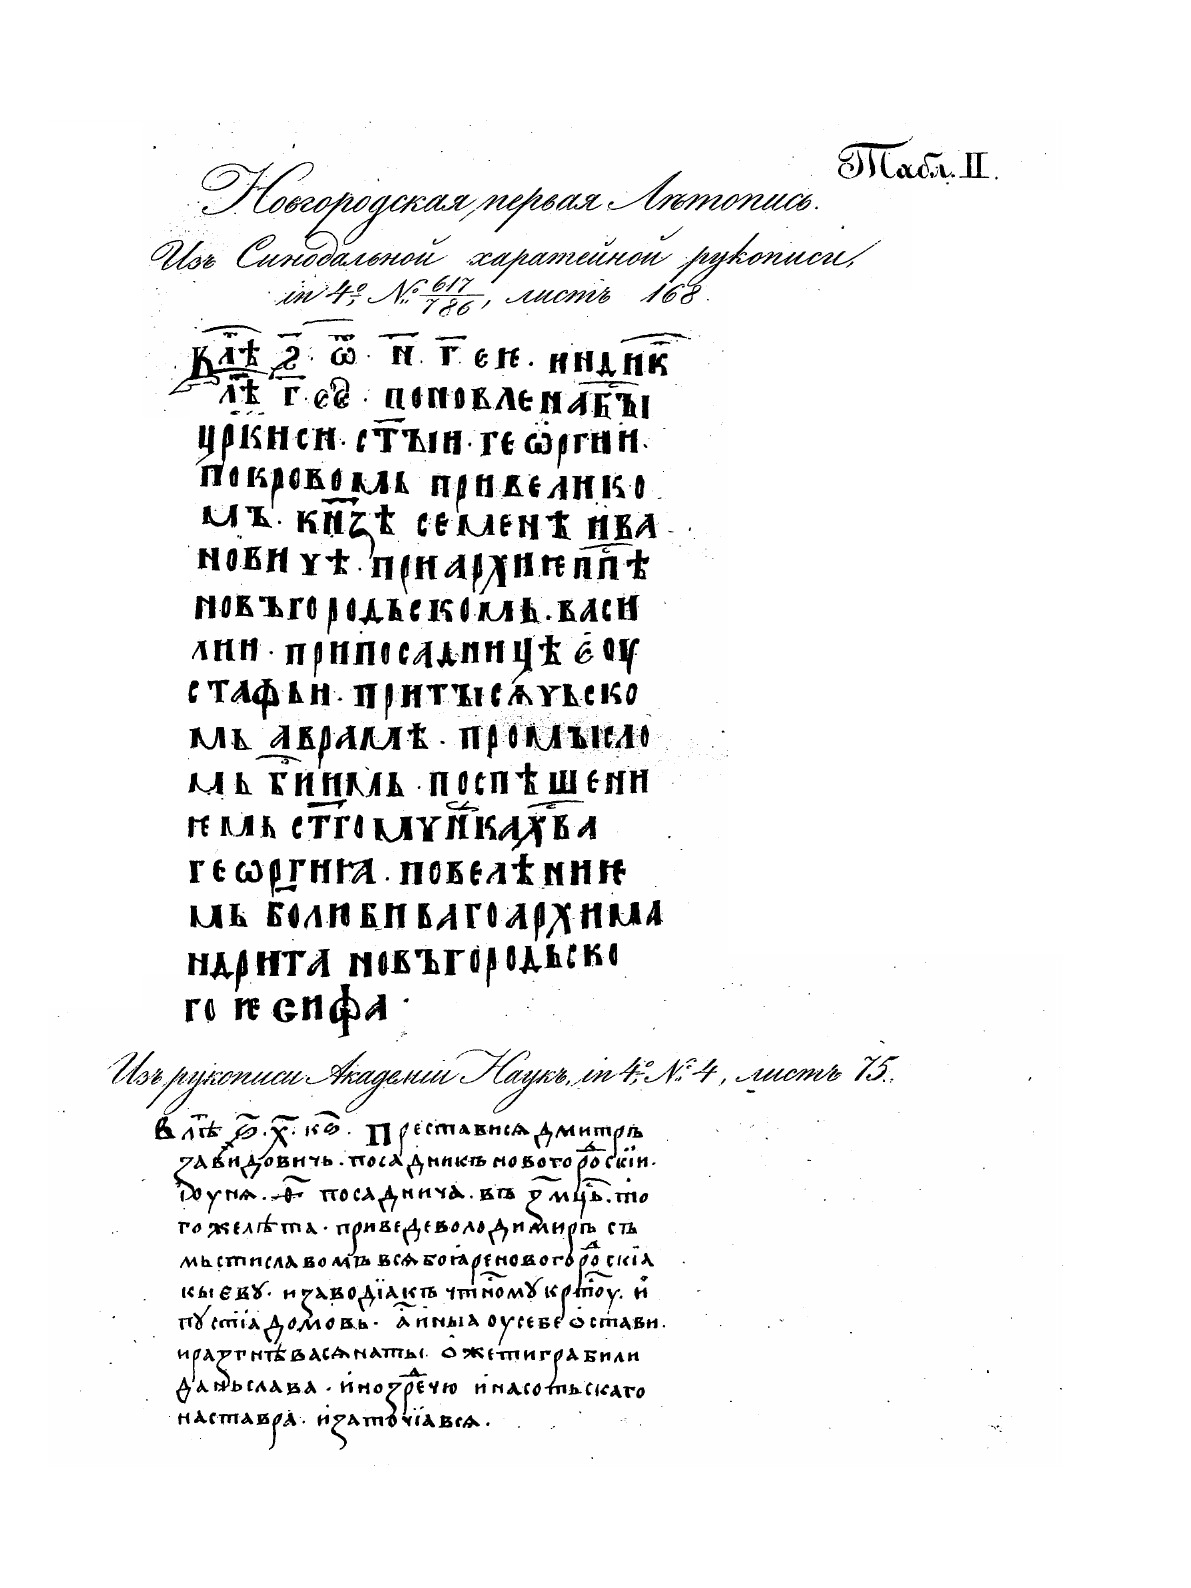 Табл. II.
Новгородская первая Лѣтопись.
Изъ Синодальной харатейной рукописи,
in 4º, № 617/786, листъ 168.
В лѣ҃ ѕ҃. ѿ. н҃. г҃ ѥн. индик҃
лѣ҃ г҃. поновлена бы҃
цр҃кы си. ст҃ыи. геѡргии.
покровомь при велико
мъ. кн҃зѣ семенѣ ива
новичѣ. при архиѥпп҃ѣ
новъгородьскомь. васи
лии. при посадницѣ еоу
стафьи. при тысѧчьско
мь аврамѣ. промысло
мь б҃иимь. поспѣшени
ѥмь ст҃го мч҃нка х҃ва
геѡргиꙗ. повелѣниѥ
мь боголюбиваго архима
ндрита новъгородьско
го ѥсифа.
Изъ рукописи Академіи Наукъ, in 4º, № 4, листъ 75.
В лѣт҃ ѕ҃. х҃. кѕ҃. Преставися дмитръ
завидовичь. посадникъ новогородⷭ҇скїи.
іоуня. ѳ҃. посаднича. въ з҃ мцⷭ҇ь. то
го же лѣта. приведе володимиръ съ
мьстиславомъ вся бояре новогороⷣскїа
кыеву. и заводїа къ чтⷭ҇ному крⷭ҇тоу. и
пустїа домовь. а ины а оу себе остави.
и разгнѣвася на ты оже ти грабили
даньслава. и ноздречю и на сотьскаго
на ставра. и заточїа вся.